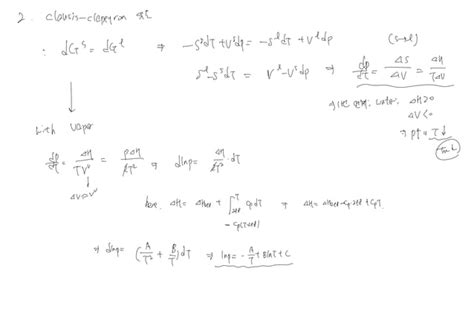 2. clausis-clapeyron 식
: dG^s = dG^l ⇒ -S^s dT + V^s dp = -S^l dT + V^l dp (s→l)
S^l - S^s dT = V^l - V^s dp ⇒ dp/dT = ΔS/ΔV = ΔH/TΔV
water. ΔH>0
ΔV<0
⇒ p↑ = T↓
with vapor
dp/dT = ΔH/TV^v = pΔH/RT² ⇒ dlnp = ΔH/RT² · dT
ΔV≈V^v
here. ΔH = ΔH + ∫ Cp dT ⇒ ΔH =
⇒ dlnp = (A/T² + B/T) dT ⇒ lnp = -A/T + BlnT + C